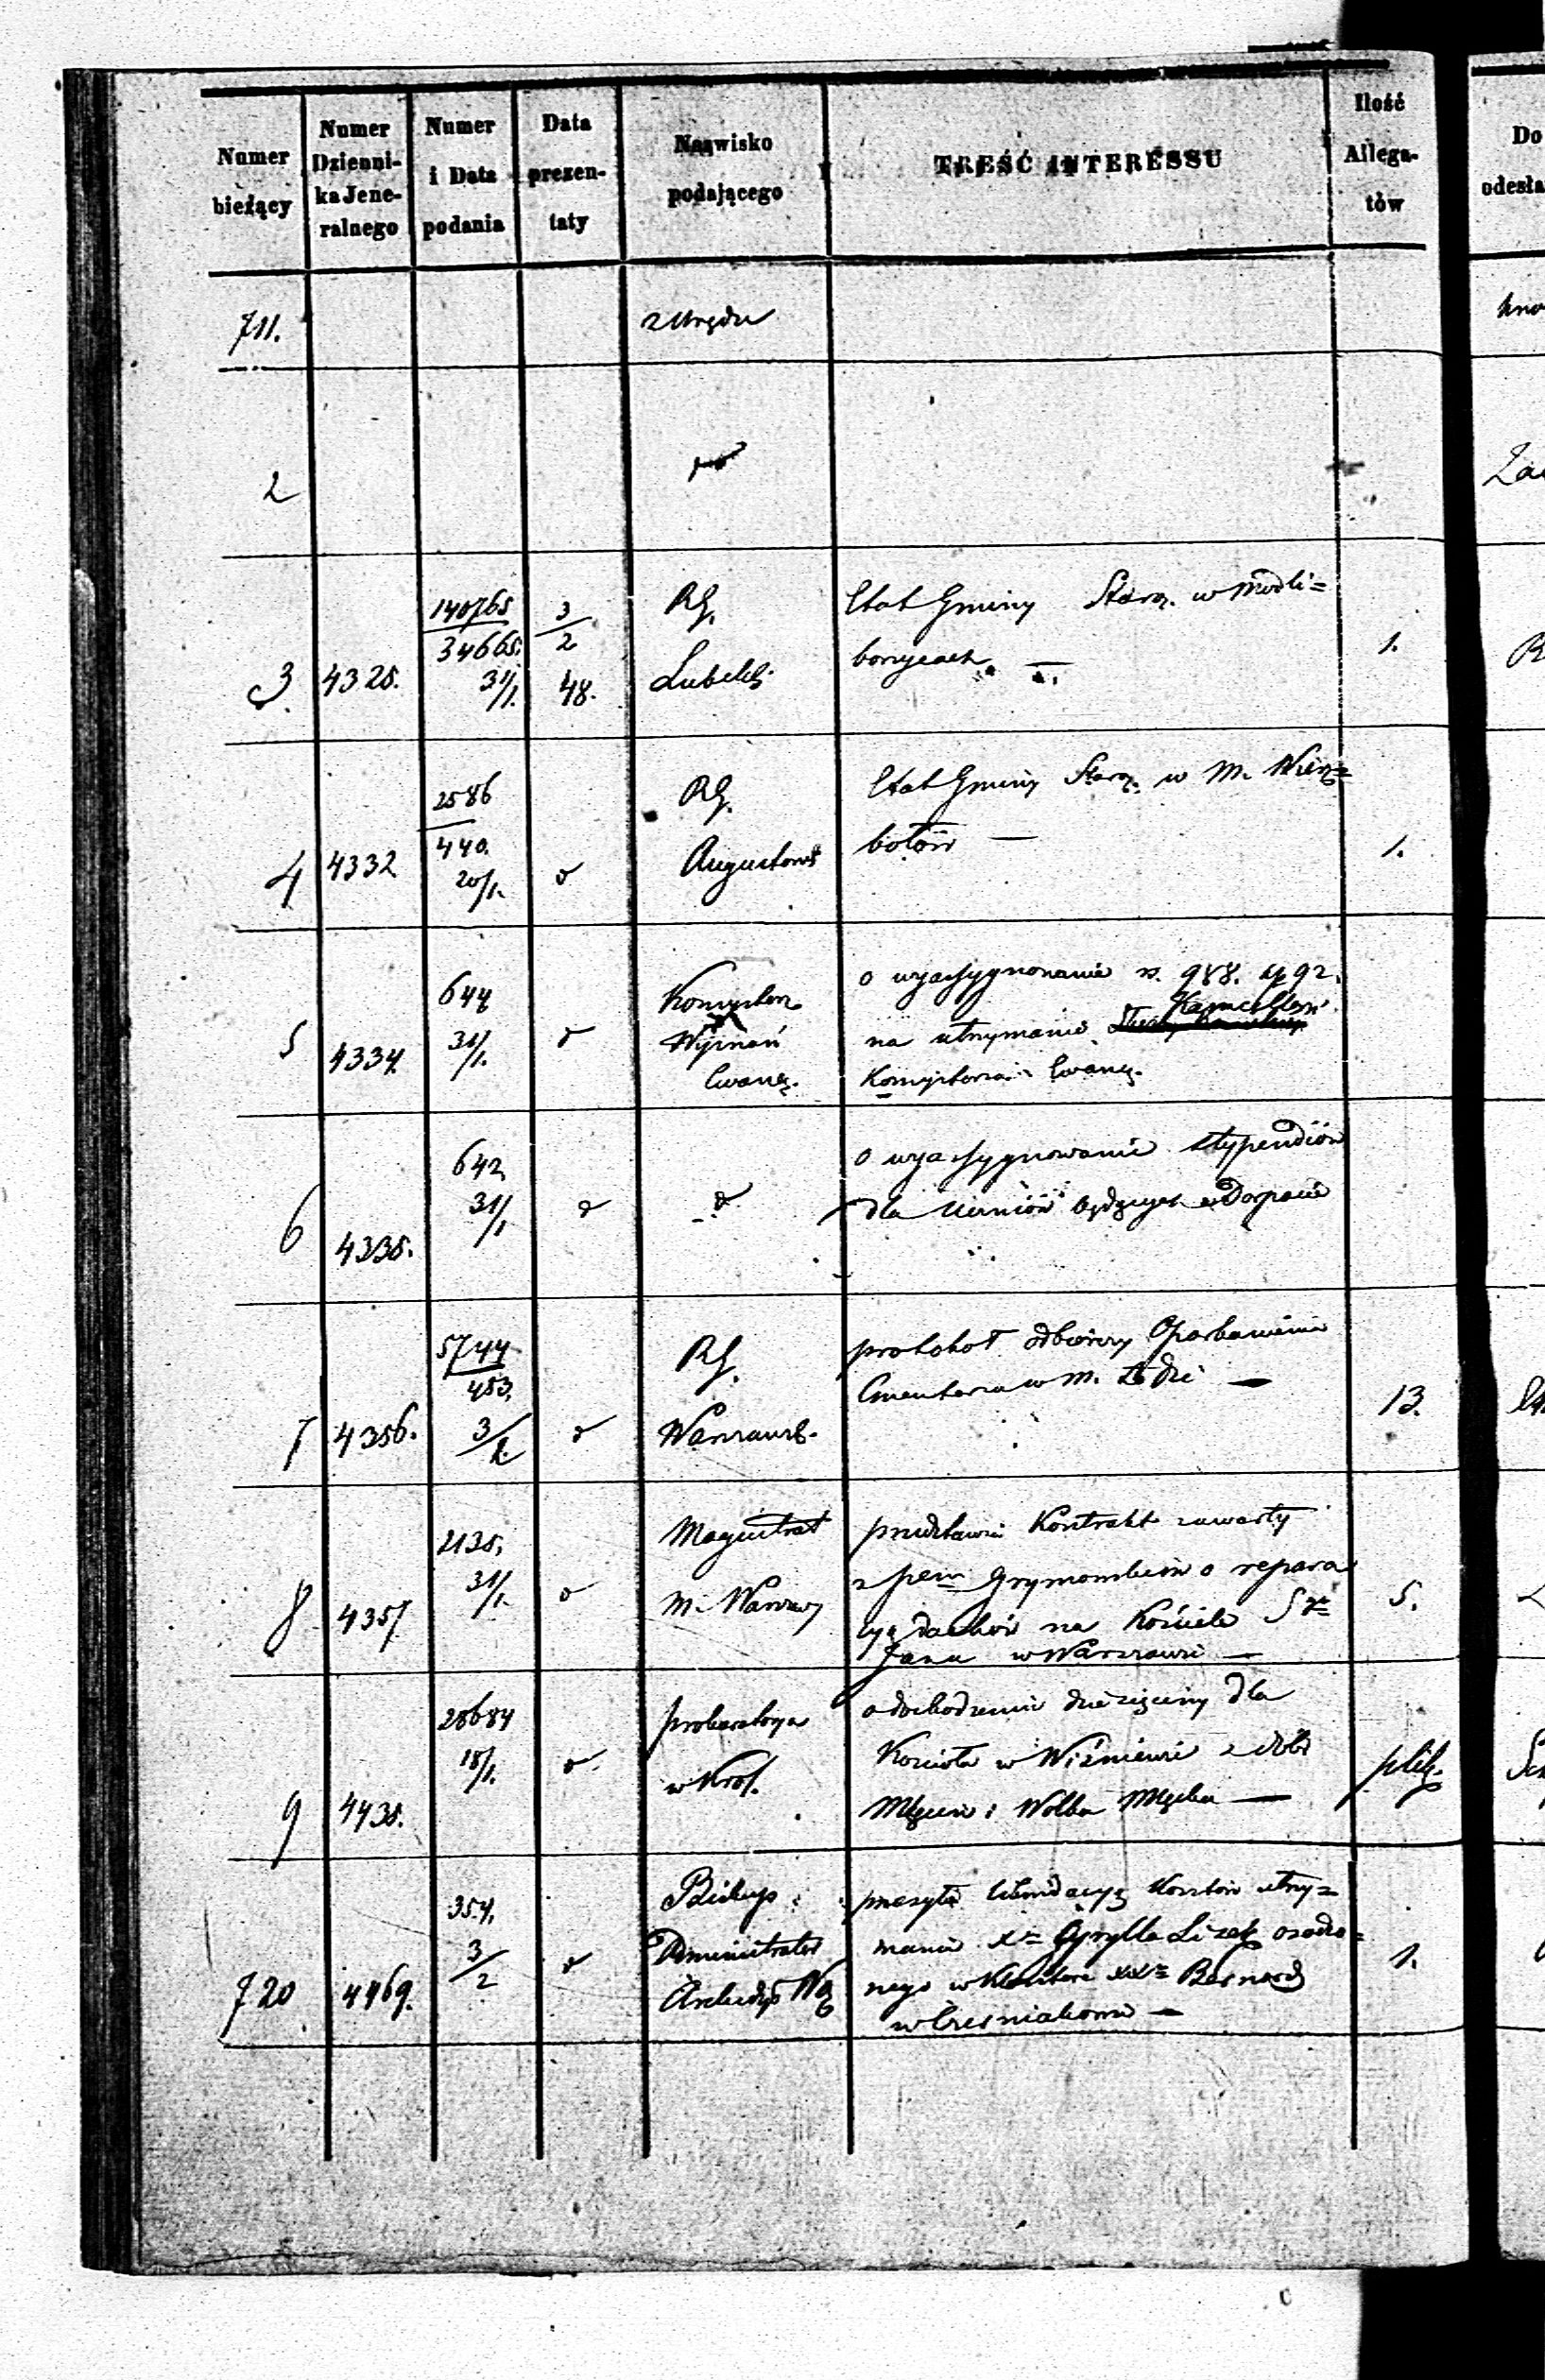 Numer bieżący
Numer Dzienni- ka Jene- ralnego
Numer i Data podania
Data prezen- taty
Nazwisko podającego
TREŚĆ INTERESSU
Ilość Allega- tów
Do odesła
711.
z Urzędu
2
do
3.
4325.
140765
34665.
31/1.
3/2
48.
RG.
Lubels.
Etat Gminy Staroz. w Modli=
borzycach —
1.
4
4332
2586
440.
20/1.
d
RG.
Augustows
Etat Gminy Staroz. w M. Wierz=
bołów —
1.
5
4334.
644
31/1.
d
Konsystorz
Wyznań
Ewang.
o wyassygnowanie rs. 988. kp 92.
na utrzymanie Kancellaryi
Konsystorza Ewang.
6
4335.
642
31/1
d
d
o wyassygnowanie stypendiów
dla Uczniów będących w Dorpacie
7
4356.
5744
453.
3/2.
d
RG.
Warszaws.
protokoł odbiorczy Oparkanienia
Cmentarza w m. Łodzi —
13.
8
4357
2135.
31/1.
d
Magistrat
M. Warszawy
przedstawia Kontrakt zawarty
z pem o repara
cyą dachów na Kościele Sgo
Jana w Warszawie —
5.
9
4435.
28684
18/1.
d
Prokuratorya
w Król.
o dochodzenie dziesięciny dla
Kościoła w Wiśniewie z dóbr
Mlęcin i Wolka Mlęcka —
plik.
720
4469.
354.
3/2
d
Biskup
Administrator
Archidyec. W
przesyła likwidacyą kosztów utrzy=
mania Xa Cyrylla osadzo=
nego w Klasztorze XXów Bernard
w —
1.